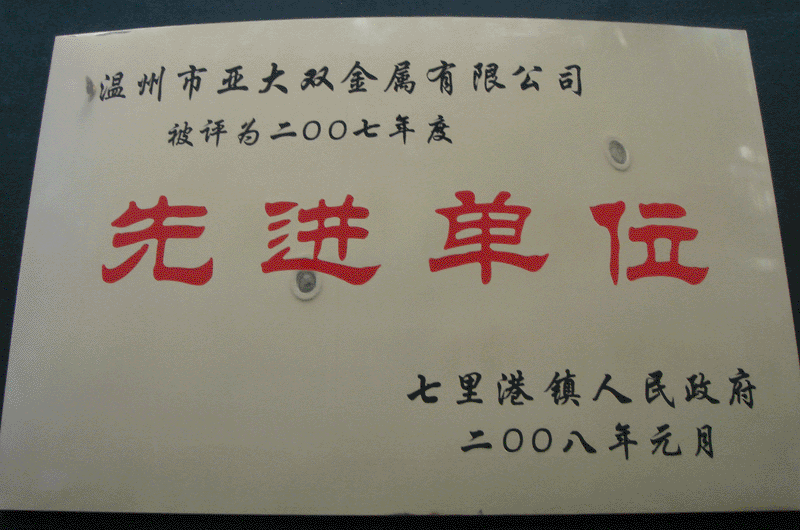 温州市亚大双金属有限公司
被评为二〇〇七年度
先进单位
七里港镇人民政府
二〇〇八年元月